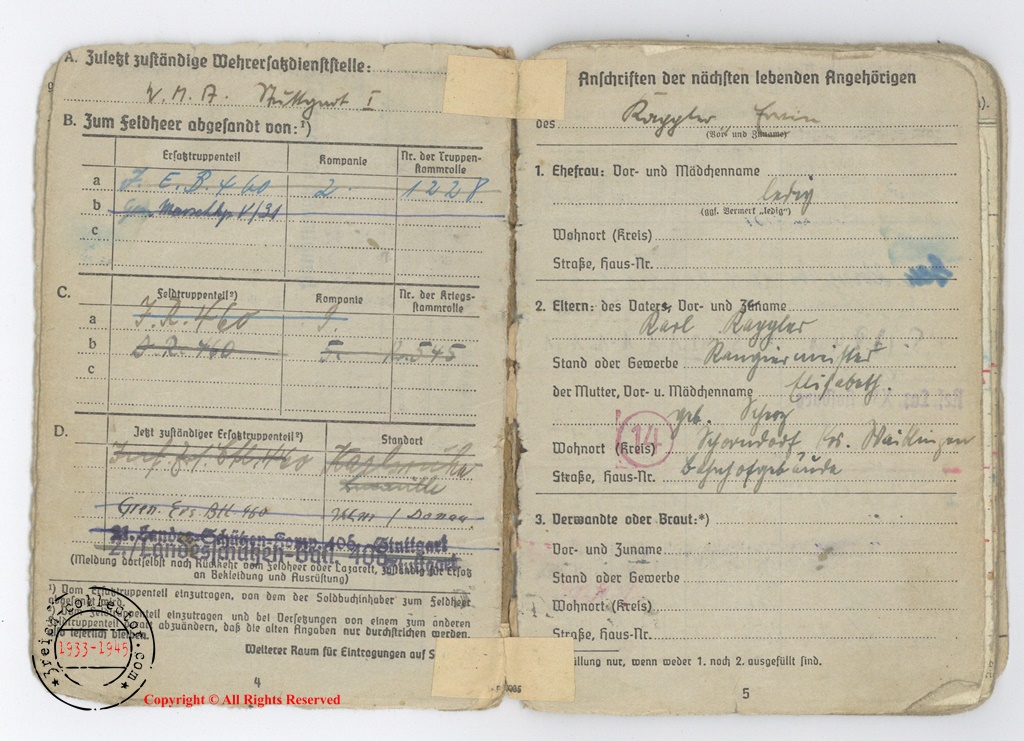 A. Zuletzt zuständige Wehrersatzdienststelle:
W. M. A. Stuttgart I
B. Zum Feldheer abgesandt von:¹)
Ersatztruppenteil Kompanie Nr. der Truppenstammrolle
a J. E. B. 460 2. 1228
b Marschkp. V/31
c
C. Feldtruppenteil²) Kompanie Nr. der Kriegsstammrolle
a J. R. 460 9.
b J. R. 460 5. 545
c
D. Jetzt zuständiger Ersatztruppenteil²) Standort
Inf. Ers. Btl. 460 Karlsruhe
Luneville
Gren. Ers. Btl. 460 Ulm / Donau
Landes-Schützen-Komp. 406. Stuttgart
2./Landesschützen-Batl. 406 Stuttgart
(Meldung dortselbst nach Rückkehr vom Feldheer oder Lazarett, zuständig für Ersatz
an Bekleidung und Ausrüstung)
¹) Vom Ersatztruppenteil einzutragen, von dem der Soldbuchinhaber zum Feldheer
abgesandt wird.
Feldtruppenteil einzutragen und bei Versetzungen von einem zum anderen
Feldtruppenteil abzuändern, daß die alten Angaben nur durchstrichen werden,
so leserlich bleiben.
Weiterer Raum für Eintragungen auf S
4
3reich-collector.com
1933-1945
Copyright © All Rights Reserved
Anschriften der nächsten lebenden Angehörigen
des Käppler Erwin
(Vor- und Zuname)
1. Ehefrau: Vor- und Mädchenname
ledig
(ggf. Vermerk „ledig“)
Wohnort (Kreis)
Straße, Haus-Nr.
2. Eltern: des Vaters, Vor- und Zuname
Karl Käppler
Stand oder Gewerbe Rangiermeister
der Mutter, Vor- u. Mädchenname Elisabeth.
geb.
1/4
Wohnort (Kreis) Schorndorf Krs. Waiblingen
Straße, Haus-Nr. Bahnhofgebäude
3. Verwandte oder Braut:*)
Vor- und Zuname
Stand oder Gewerbe
Wohnort (Kreis)
Straße, Haus-Nr.
üllung nur, wenn weder 1. noch 2. ausgefüllt sind.
5